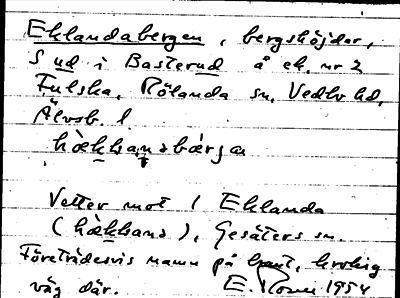 Eklandabergen, bergshöjder,
S ud i Basterud å ek. nr 2
Fulska, Rölanda sn, Vedbo hd,
Älvsb. l.
hæ̀kḷansbærja
Vetter mot 1 Eklanda
(hæ̀kḷans), Gesäters sn.
Företrädesvis namn på brant, krokig
väg där. E. Rosen 1954